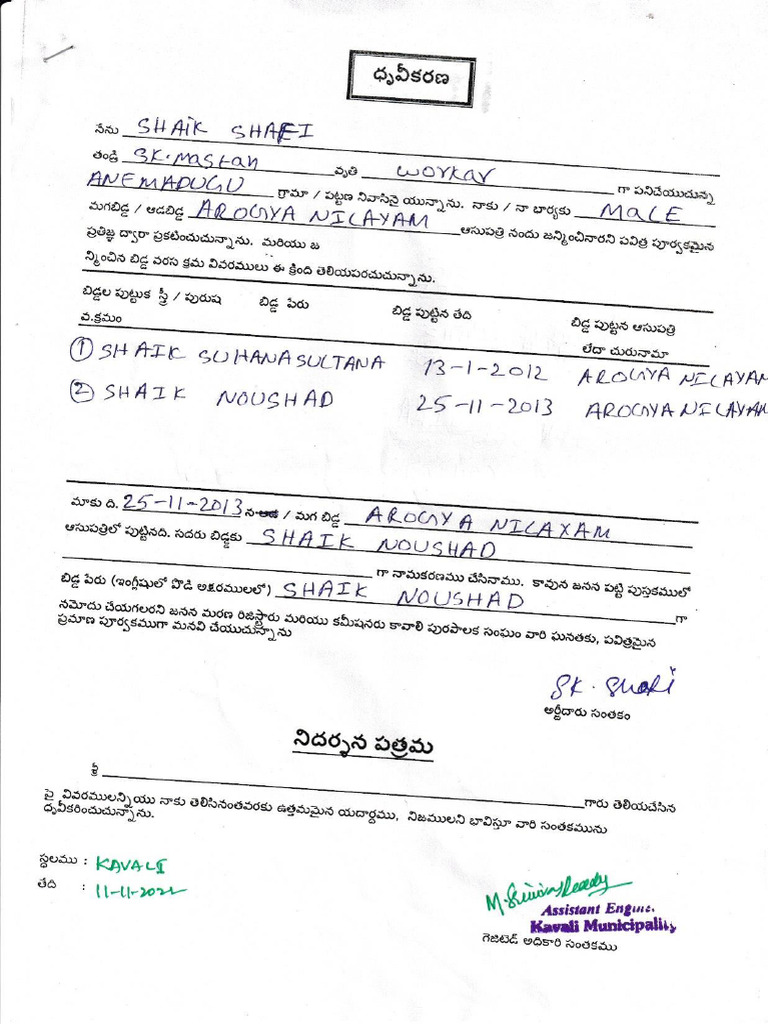 ధృవీకరణ
నేను SHAIK SHAFI
తండ్రి SK.Mastan వృతి workar గా పనిచేయుచున్న
ANEMADUGU గ్రామా / పట్టణ నివాసినై యున్నాను. నాకు / నా భార్యకు MALE
మగబిడ్డ / ఆడబిడ్డ AROGYA NILAYAM ఆసుపత్రి నందు జన్మించినారని పవిత్ర పూర్వకమైన
ప్రతిజ్ఞ ద్వారా ప్రకటించుచున్నాను. మరియు జ
న్మించిన బిడ్డ వరస క్రమ వివరములు ఈ క్రింది తెలియపరచుచున్నాను.
బిడ్డల పుట్టుక స్త్రీ / పురుష బిడ్డ పేరు బిడ్డ పుట్టిన తేది బిడ్డ పుట్టన ఆసుపత్రి
వ.క్రమం లేదా చురునామా
① SHAIK SUHANASULTANA 13-1-2012 AROGYA NILAYAM
② SHAIK NOUSHAD 25-11-2013 AROGYA NILAYAM
మాకు ది. 25-11-2013 న ఆడ / మగ బిడ్డ AROGYA NILAYAM
ఆసుపత్రిలో పుట్టినది. సదరు బిడ్డకు SHAIK NOUSHAD
గా నామకరణము చేసినాము. కావున జనన పట్టి పుస్తకములో
బిడ్డ పేరు (ఇంగ్లీషులో పొడి అక్షరములలో) SHAIK NOUSHAD గా
నమోదు చేయగలరని జనన మరణ రిజిస్ట్రారు మరియు కమీషనరు కావాలి పురపాలక సంఘం వారి ఘనతకు, పవిత్రమైన
ప్రమాణ పూర్వకముగా మనవి చేయుచున్నాను
SK. Shafi
అర్జీదారు సంతకం
నిదర్శన పత్రమ
శ్రీ గారు తెలియచేసిన
పై వివరములన్నియు నాకు తెలిసినంతవరకు ఉత్తమమైన యదార్థము, నిజములని భావిస్తూ వారి సంతకమును
ధృవీకరించుచున్నాను.
స్థలము : KAVALI
తేది : 11-11-2022
M.Srinivas Reddy
Assistant Engine.
Kavali Municipality
గెజిటెడ్ అధికారి సంతకము